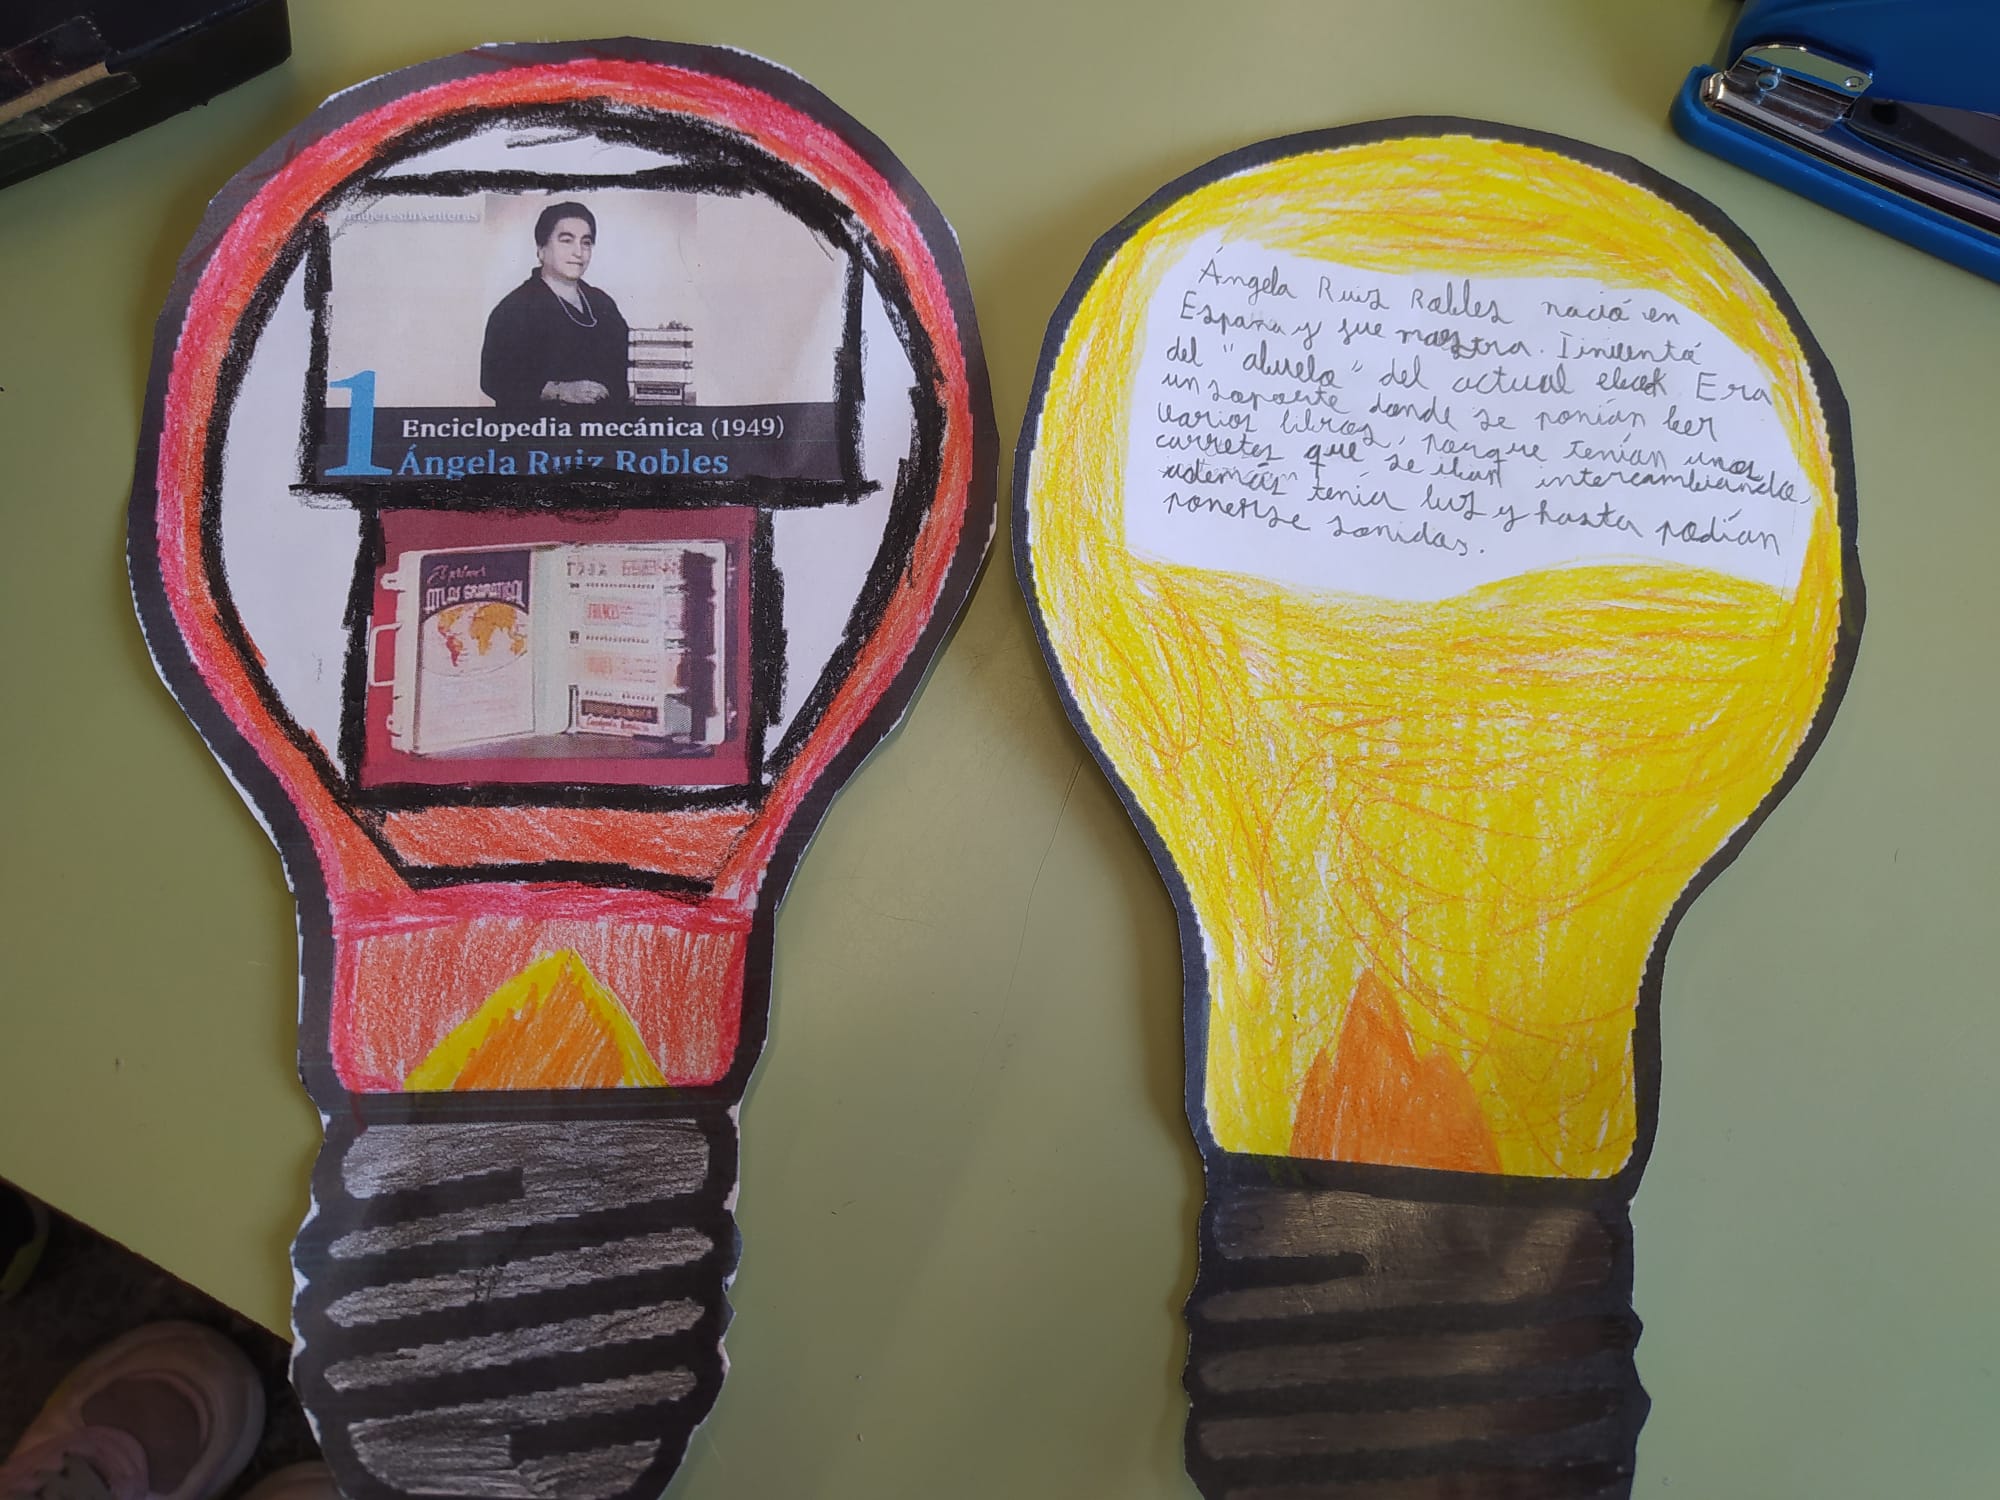 #mujeresinventoras
1
Enciclopedia mecánica (1949)
Ángela Ruiz Robles
ATLAS GRAMATICAL
Ángela Ruiz Robles nació en
España y fue maestra. Iinventó
del "abuelo" del actual ebook. Era
un soporte donde se ponían leer
varios libros, porque tenían unos
carretes que se iban intercambiando,
además tenía luz y hasta podían
ponerse sonidos.